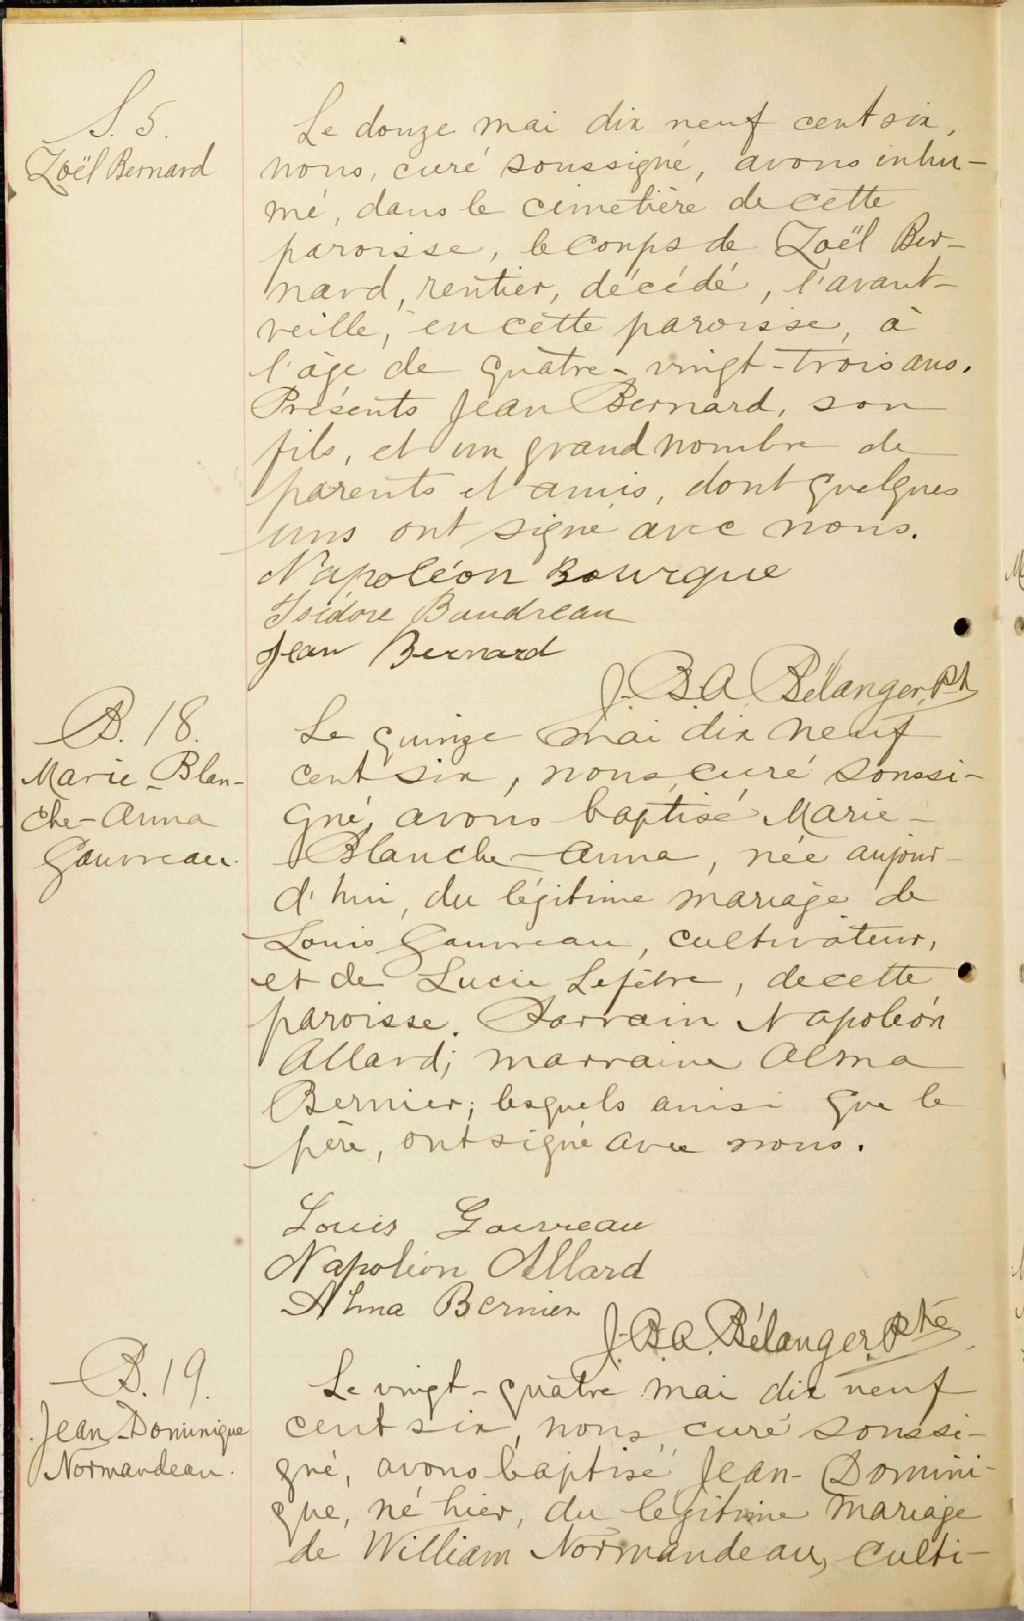 S. 5.
Zoël Bernard
Le douze mai dix neuf cent six,
nous, curé soussigné, avons inhu-
mé, dans le cimetière de cette
paroisse, le corps de Zoël Ber-
nard, rentier, décédé, l'avant-
veille, en cette paroisse, à
l'âge de quatre-vingt-trois ans.
Présents Jean Bernard, son
fils, et un grand nombre de
parents et amis, dont quelques
uns ont signé avec nous.
Napoléon Bourque
Isidore Boudreau
Jean Bernard
J. B. A. Bélanger, Pt
B. 18.
Marie-Blan-
che-Anna
Gauvreau.
Le quinze mai dix neuf
cent six, nous, curé soussi-
gné, avons baptisé Marie-
Blanche-Anna, née aujour-
d'hui, du légitime mariage de
Louis Gauvreau, cultivateur,
et de Lucie Lefebvre, de cette
paroisse. Parrain Napoléon
Allard; marraine Alma
Bernier; lesquels ainsi que le
père, ont signé avec nous.
Louis Gauvreau
Napoléon Allard
Alma Bernier
J. B. A. Bélanger, Ptre
B. 19.
Jean-Dominique
Normandeau.
Le vingt-quatre mai dix neuf
cent six, nous, curé soussi-
gné, avons baptisé Jean-Domini-
que, né hier, du légitime mariage
de William Normandeau, culti-